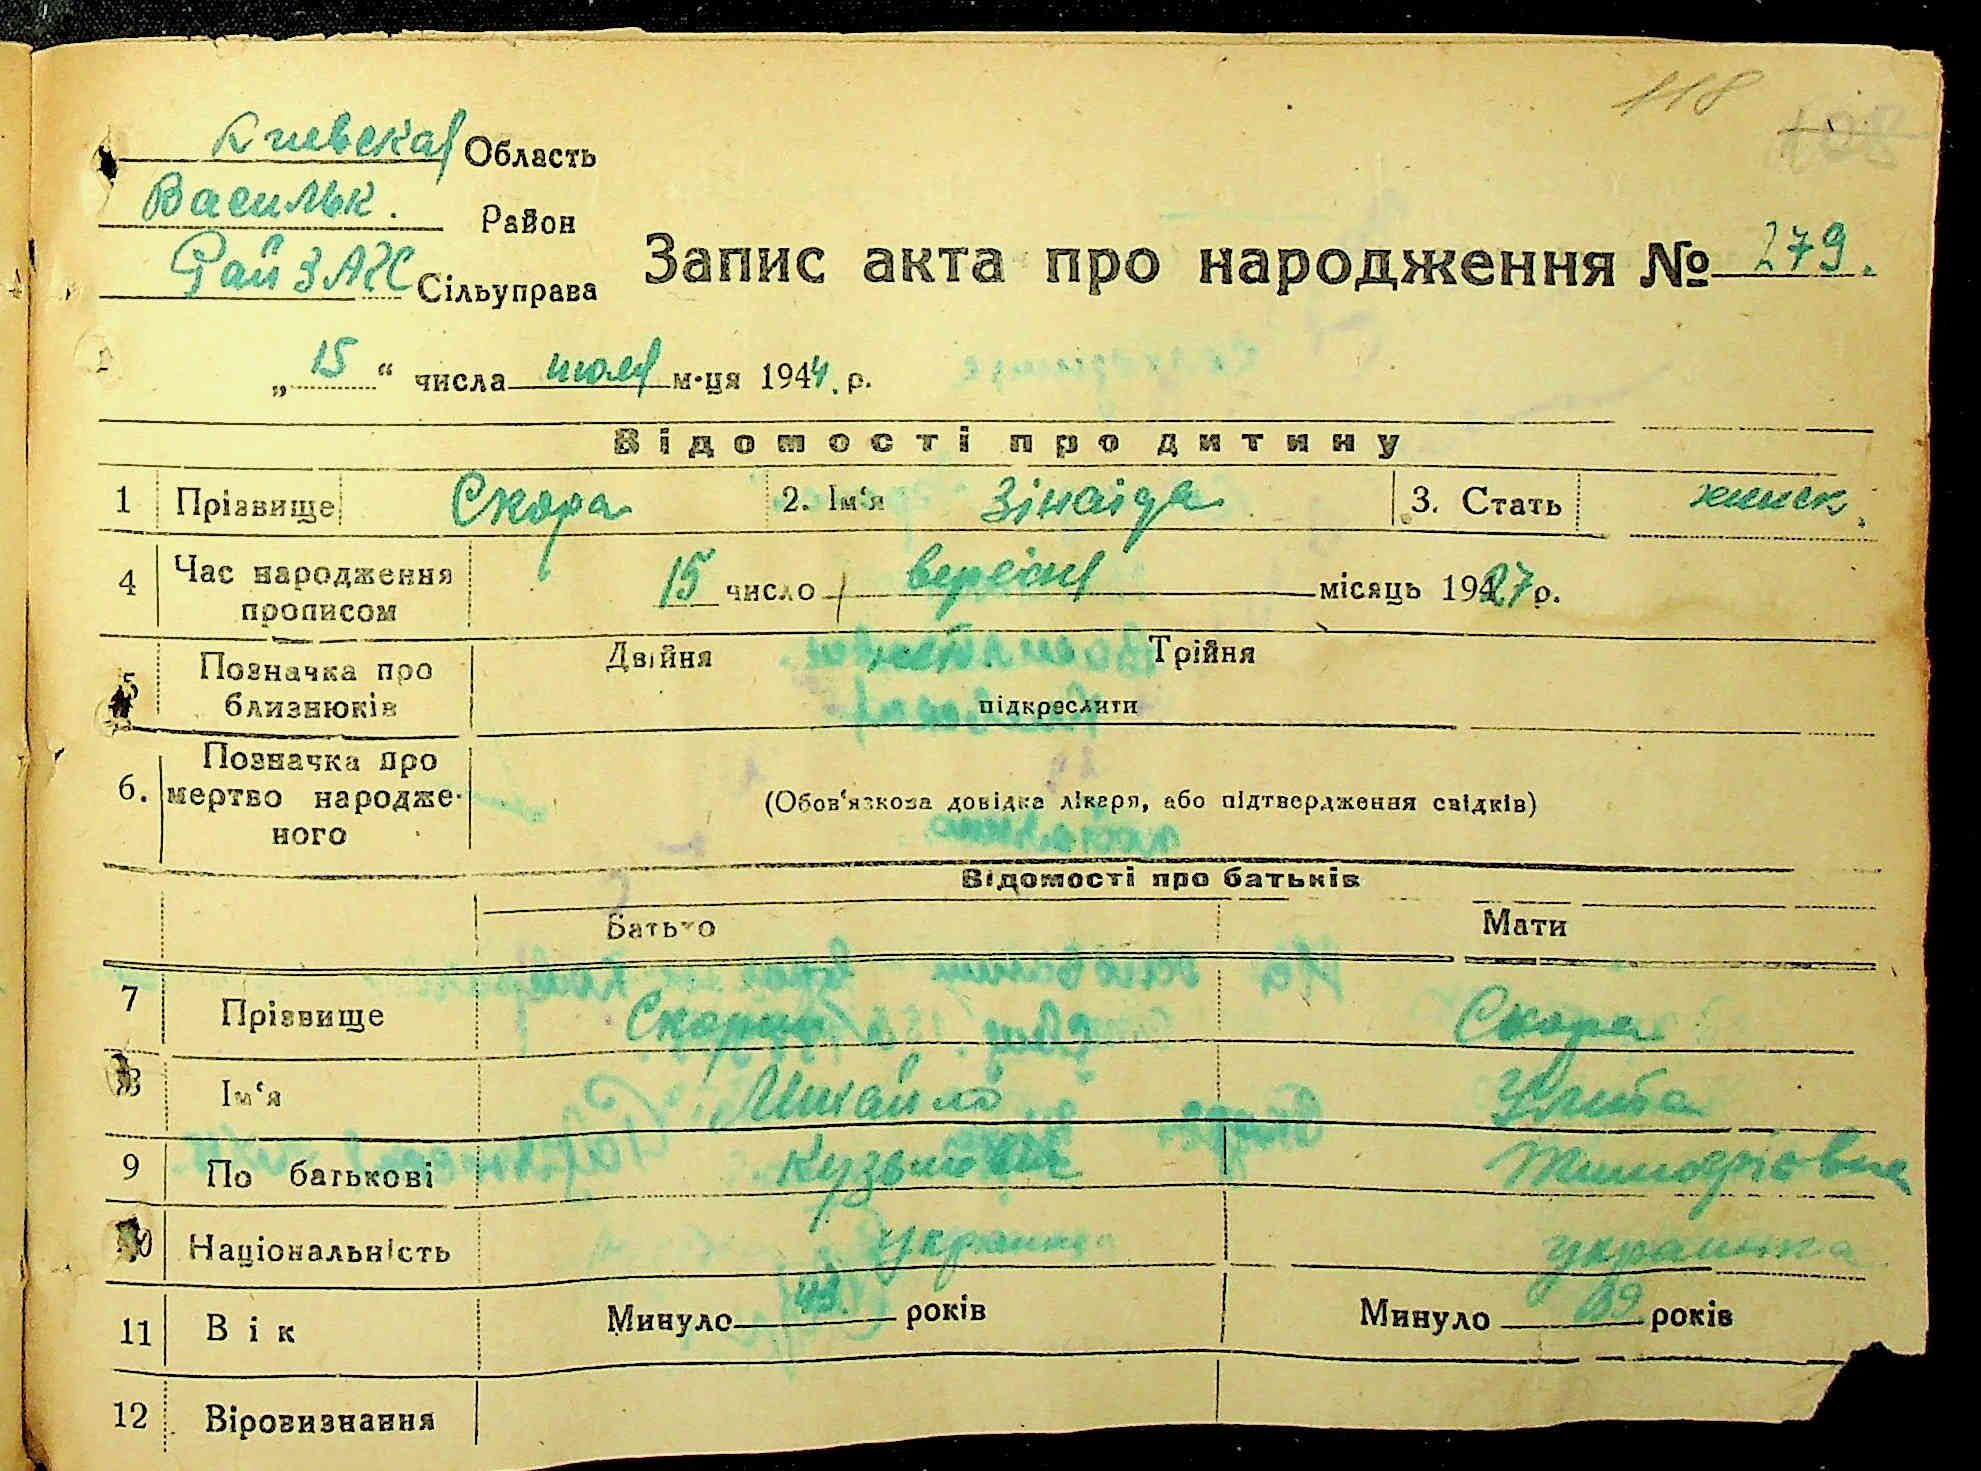 118
Киевская Область
Васильк. Район
РайЗАГС Сільуправа
Запис акта про народження № 279.
„15“ числа июля м-ця 1944. р.
Відомості про дитину
1 Прізвище Скора 2. Ім‘я Зінаіда 3. Стать
4 Час народження прописом 15 число вересня місяць 1927 р.
5 Позначка про близнюків Двійня Трійня
підкреслити
6. Позначка про мертво народже-ного (Обов‘язкова довідка лікаря, або підтвердження свідків)
Відомості про батьків
Батько Мати
7 Прізвище Скорий Скора
8 Ім‘я Михайло Улита
9 По батькові Кузьмович Тимофіівна
10 Національність украинец украинка
11 Вік Минуло 43. років Минуло 39 років
12 Віровизнання